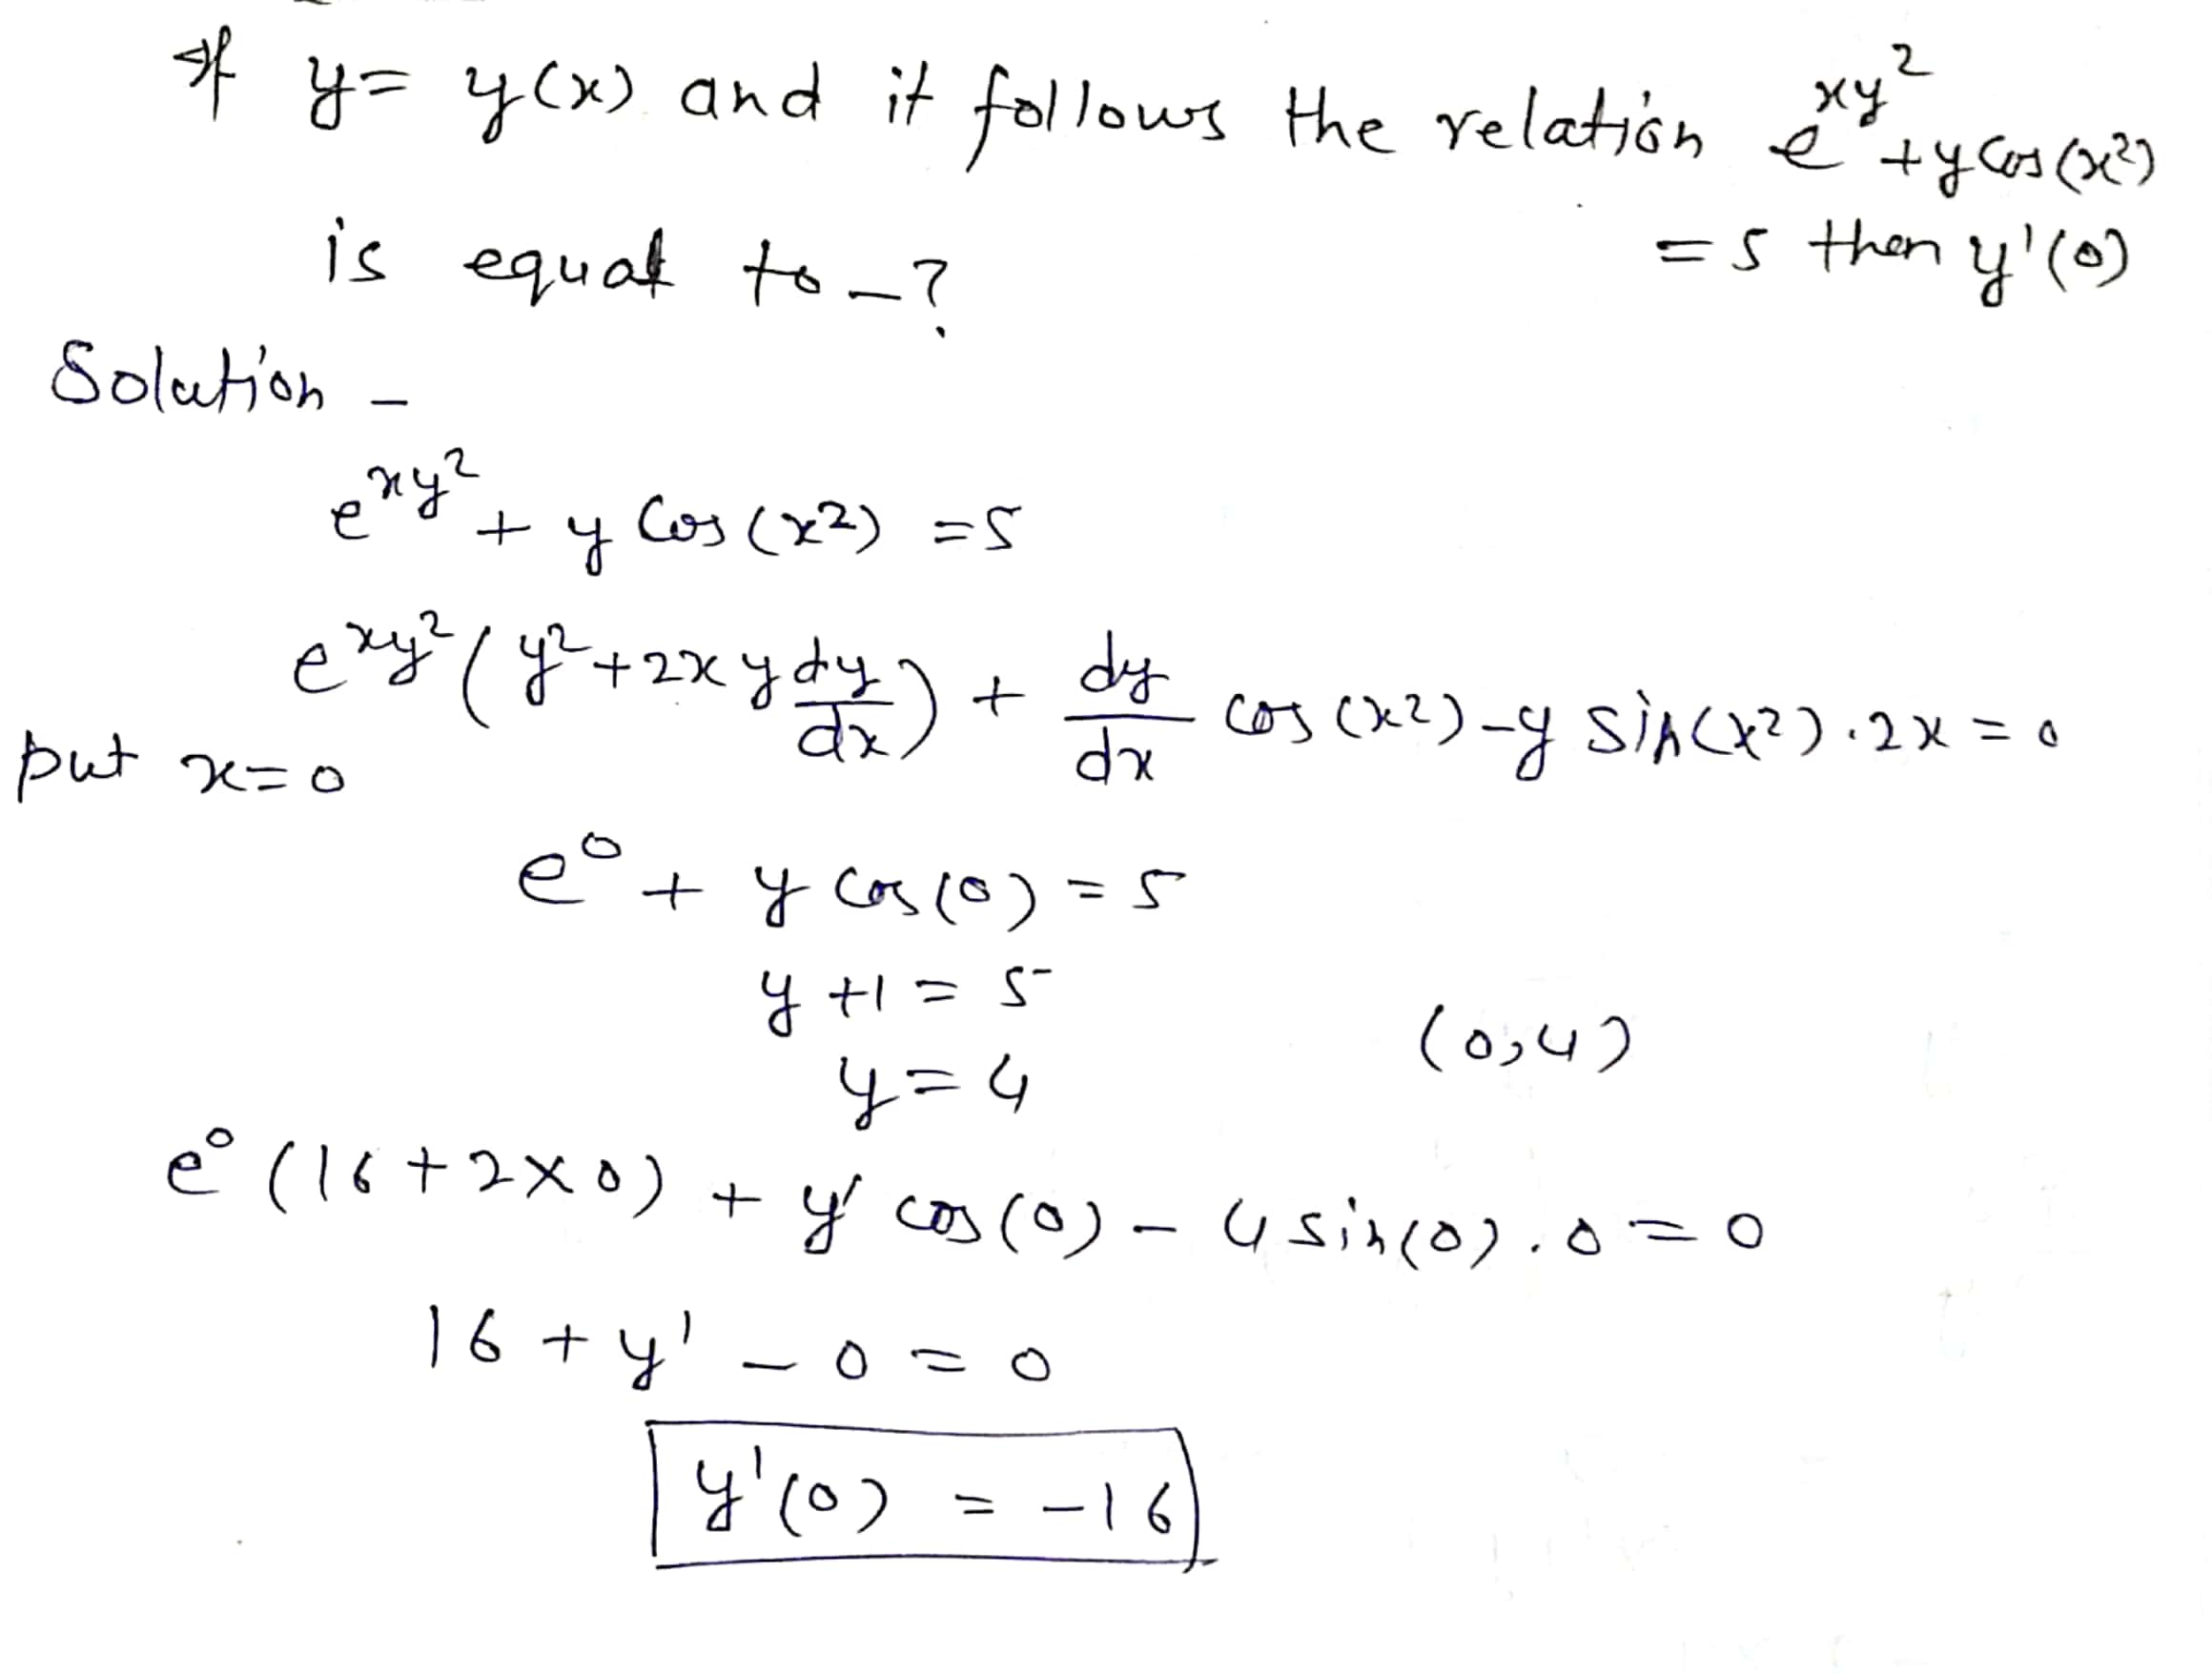 If y = y(x) and it follows the relation e^{xy^2} + y cos(x^2)
= 5 then y'(0)
is equal to _ ?
Solution -
e^{xy^2} + y Cos(x^2) = 5
e^{xy^2}(y^2 + 2xy dy/dx) + dy/dx cos(x^2) - y sin(x^2).2x = 0
put x = 0
e^0 + y cos(0) = 5
y + 1 = 5
y = 4 (0,4)
e^0 (16 + 2×0) + y' cos(0) - 4 sin(0).0 = 0
16 + y' - 0 = 0
y'(0) = -16